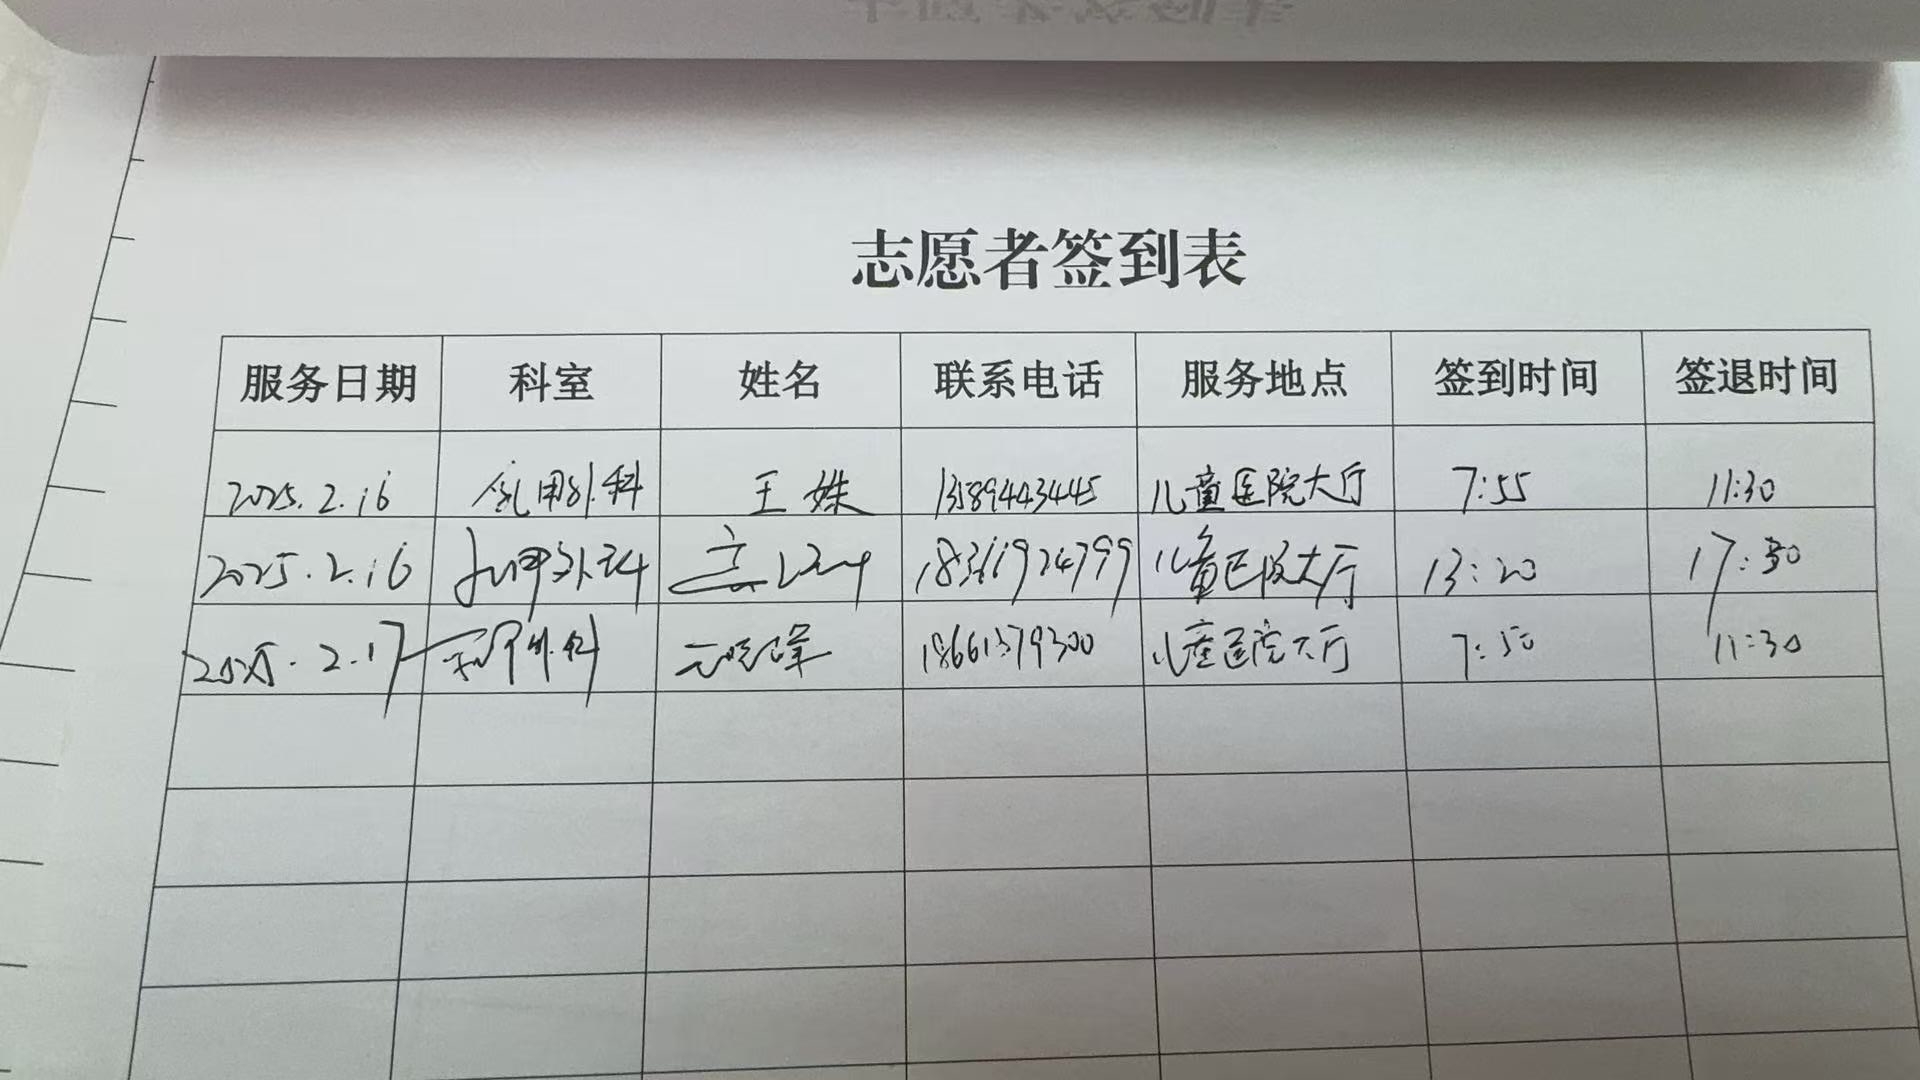 志愿者签到表
服务日期 科室 姓名 联系电话 服务地点 签到时间 签退时间
2025.2.16 外科 王姝 13589443445 儿童医院大厅 7:55 11:30
2025.2.16 外科 儿童医院大厅 13:20 17:30
2025.2.17 外科 18661379300 儿童医院大厅 7:50 11:30